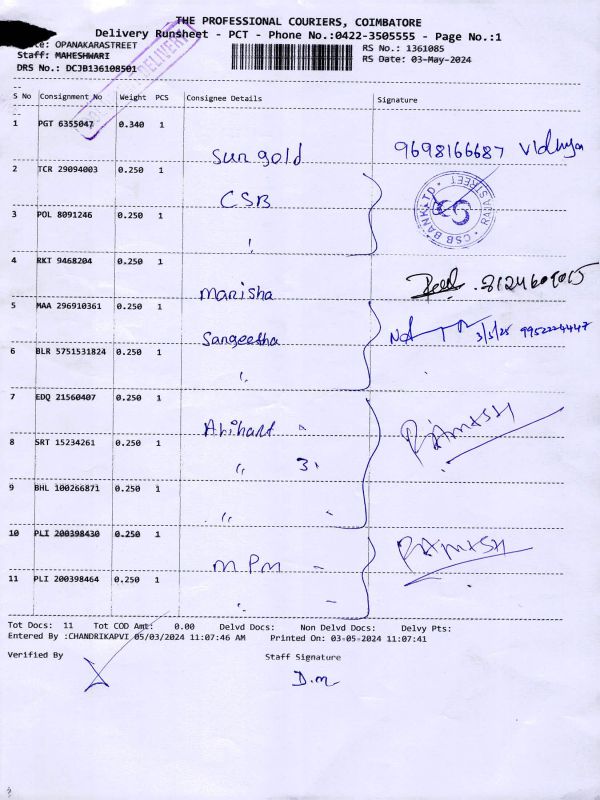 THE PROFESSIONAL COURIERS, COIMBATORE
Delivery Runsheet - PCT - Phone No.:0422-3505555 - Page No.:1
OPANAKARASTREET
RS No.: 1361085
Staff: MAHESHWARI
RS Date: 03-May-2024
DRS No.: DCJB136108501
DELIVERY
S No Consignment No Weight PCS Consignee Details Signature
1 PGT 6355047 0.340 1
Sun gold 9698166687 Vidhya
2 TCR 29094003 0.250 1
CSB
CSB BANK LTD
3 POL 8091246 0.250 1
4 RKT 9468204 0.250 1
Manisha
5 MAA 296910361 0.250 1
Sangeetha 9952224447
6 BLR 5751531824 0.250 1
7 EDQ 21560407 0.250 1
Arihant RAMESH
8 SRT 15234261 0.250 1
" 3
9 BHL 100266871 0.250 1
"
10 PLI 200398430 0.250 1
MPM RAMESH
11 PLI 200398464 0.250 1
Tot Docs: 11 Tot COD Amt: 0.00 Delvd Docs: Non Delvd Docs: Delvy Pts:
Entered By :CHANDRIKAPVI 05/03/2024 11:07:46 AM Printed On: 03-05-2024 11:07:41
Verified By Staff Signature
D.m